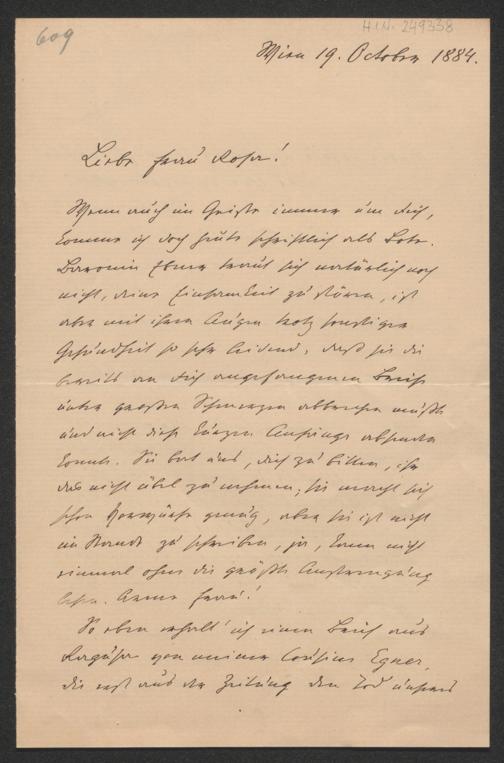 609
H.I.N. 249338
Wien 19. October 1884.
Liebe Frau Rosa!
Wenn auch im Geiste immer um dich,
komme ich doch heute schriftlich als Bote.
Baronin Ebner traut sich natürlich noch
nicht, deine Einsamkeit zu stören, ist
aber mit ihren Augen trotz sonstiger
Gesundheit so sehr leidend, daß sie die
bereits an dich angefangenen Briefe
unter großen Schmerzen abbrechen mußte
und nicht diese kurzen Anfänge absenden
konnte. Sie bat uns, dich zu bitten, ihr
das nicht übel zu nehmen; sie macht sich
schon Vorwürfe genug, aber sie ist nicht
im Stande zu schreiben, ja, kann nicht
einmal ohne die größte Anstrengung
lesen. Arme Frau!
So eben erhalt' ich einen Brief aus
Ragusa von meiner Cousine Egner,
die erst aus der Zeitung den Tod unseres